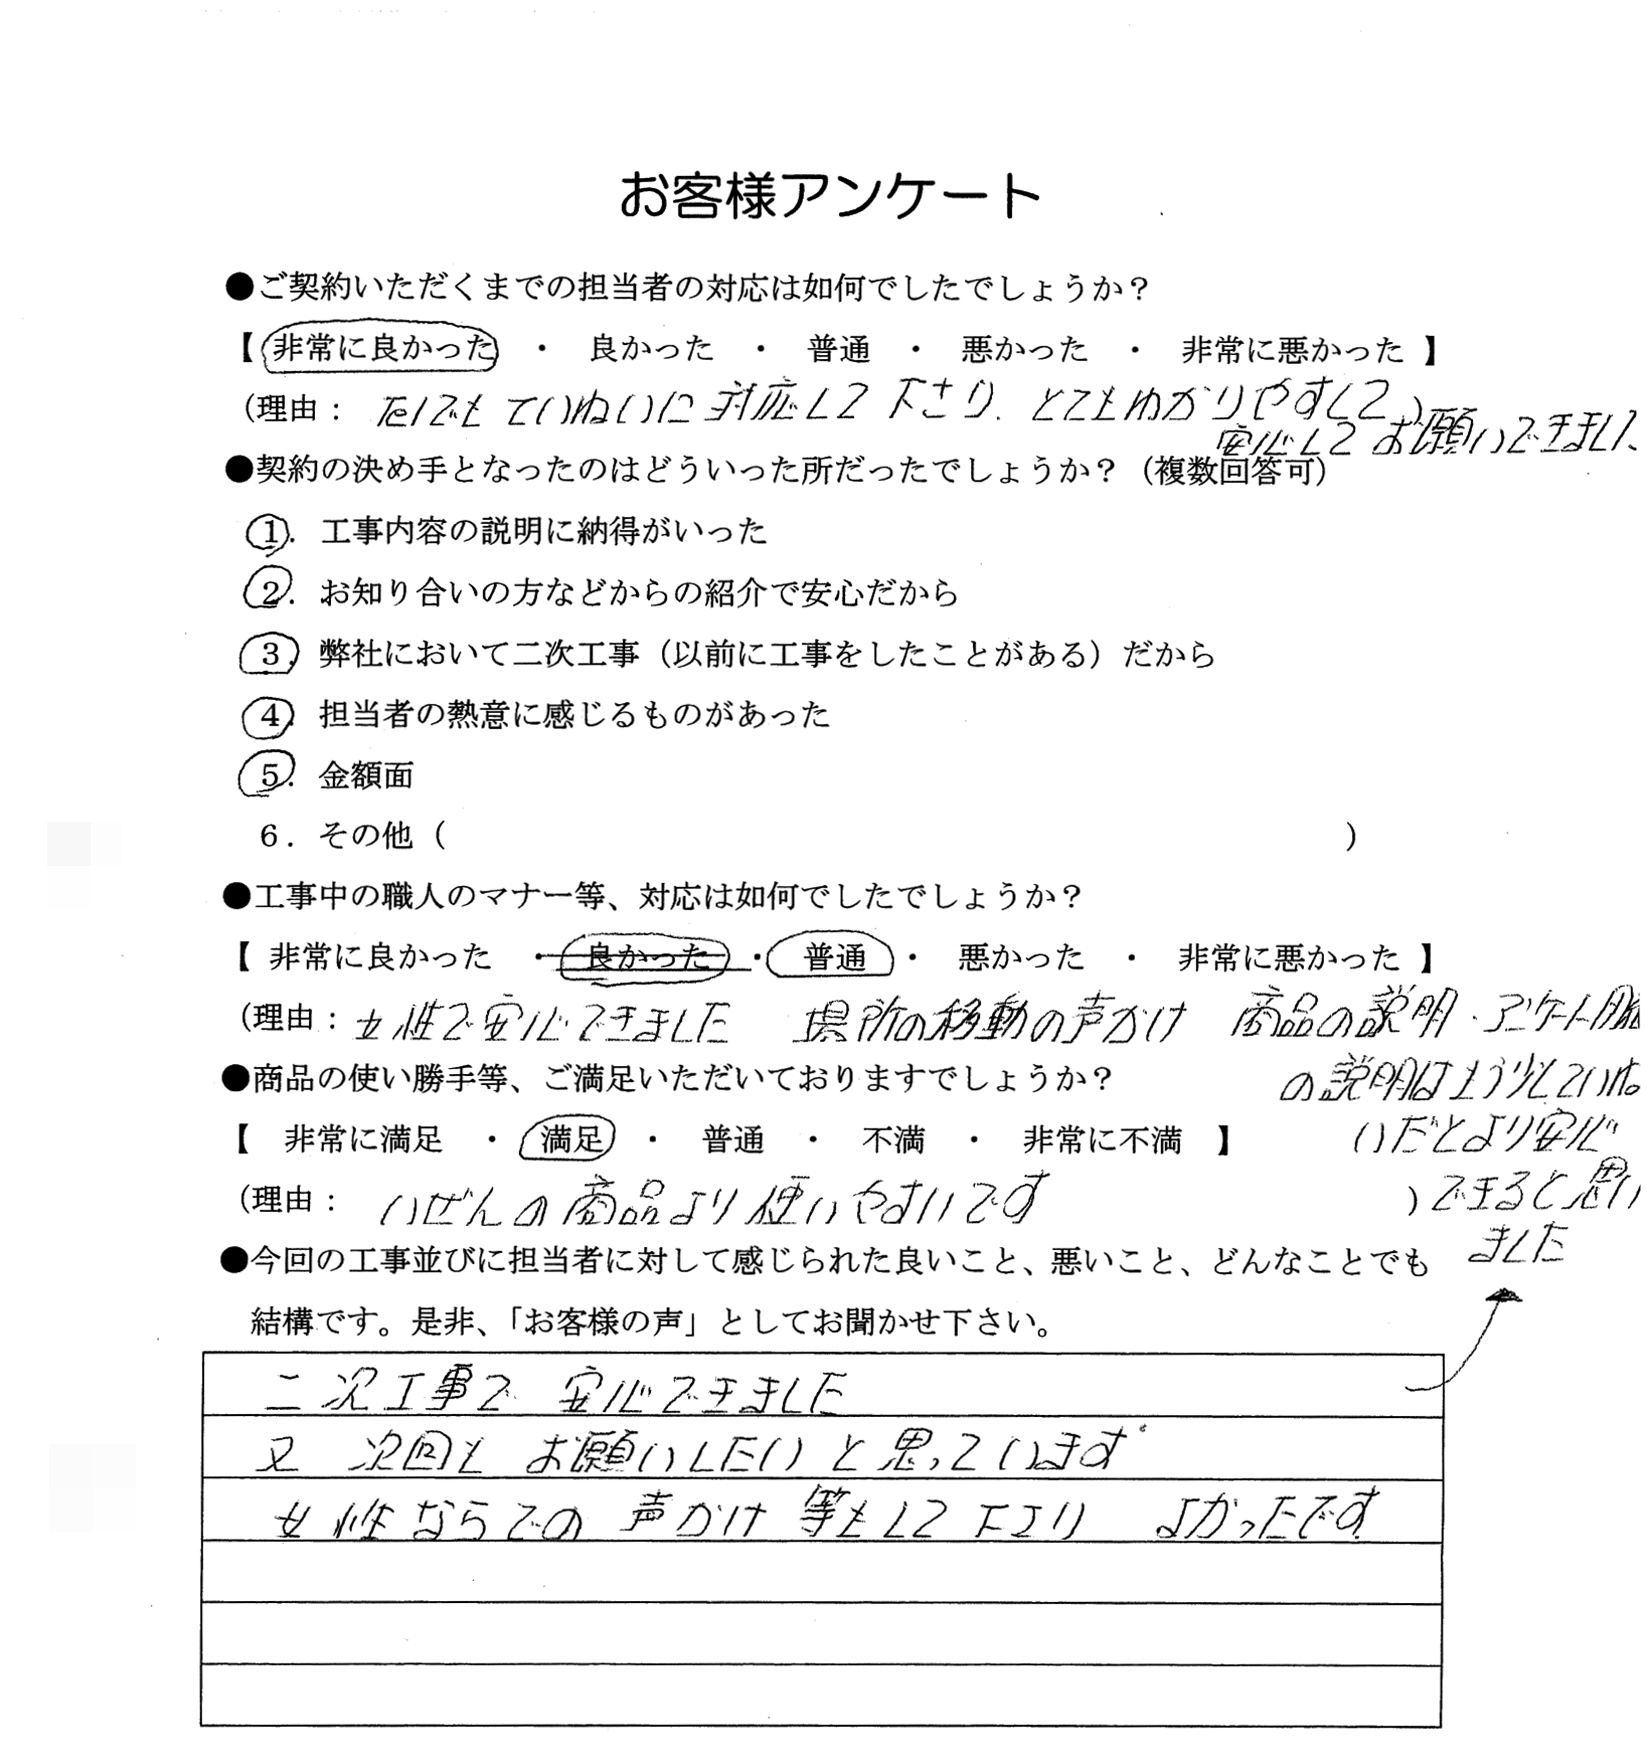 お客様アンケート
●ご契約いただくまでの担当者の対応は如何でしたでしょうか？
【 非常に良かった ・ 良かった ・ 普通 ・ 悪かった ・ 非常に悪かった 】
（理由： ていねいに対応して下さり、とてもわかりやすくて）
安心してお願いできました
●契約の決め手となったのはどういった所だったでしょうか？（複数回答可）
１．工事内容の説明に納得がいった
２．お知り合いの方などからの紹介で安心だから
３．弊社において二次工事（以前に工事をしたことがある）だから
４．担当者の熱意に感じるものがあった
５．金額面
６．その他（ ）
●工事中の職人のマナー等、対応は如何でしたでしょうか？
【 非常に良かった ・ 良かった ・ 普通 ・ 悪かった ・ 非常に悪かった 】
（理由：女性で安心できました 場所の移動の声かけ 商品の説明・
の説明はもう少していね
いだとより安心
できると思い
ました
●商品の使い勝手等、ご満足いただいておりますでしょうか？
【 非常に満足 ・ 満足 ・ 普通 ・ 不満 ・ 非常に不満 】
（理由： いぜんの商品より使いやすいです ）
●今回の工事並びに担当者に対して感じられた良いこと、悪いこと、どんなことでも
結構です。是非、「お客様の声」としてお聞かせ下さい。
二次工事で 安心できました
又 次回も お願いしたいと思っています。
女性ならでの 声かけ 等もして下さり よかったです